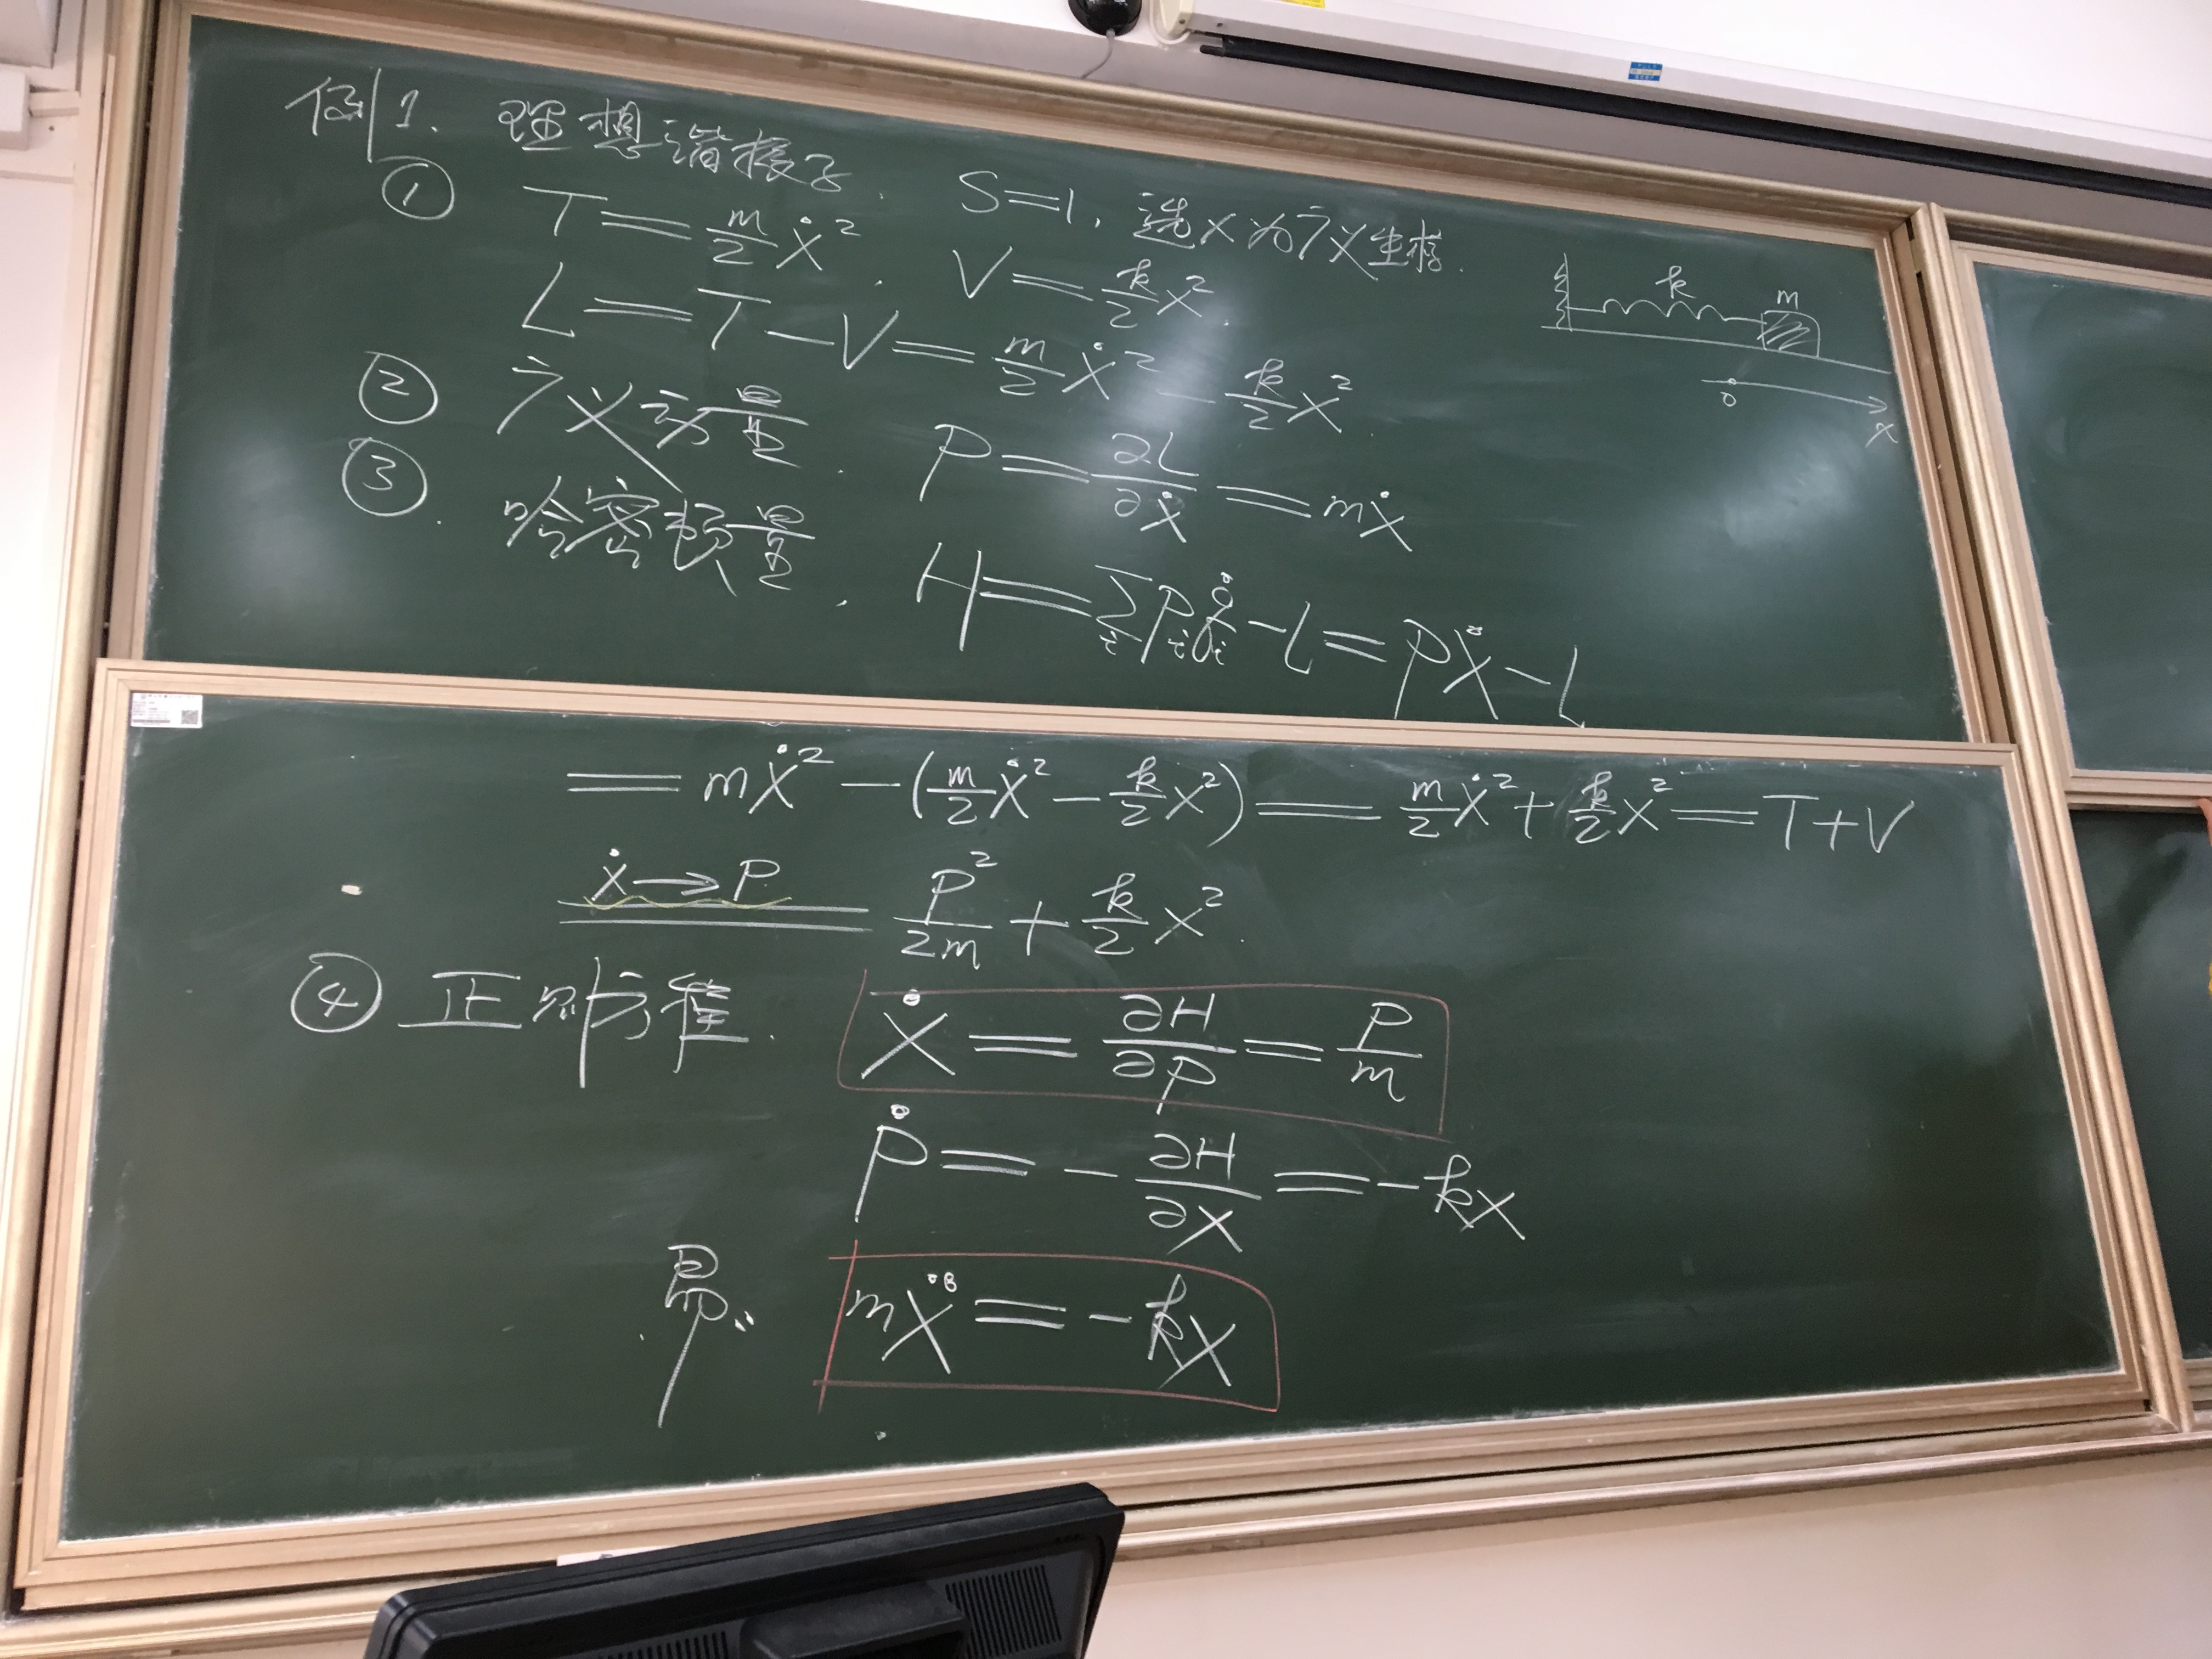 例1. 理想谐振子. S=1, 选x为广义坐标.
① T = m/2 ẋ². V = k/2 x².
L = T − V = m/2 ẋ² − k/2 x².
k m
o x
② 广义动量. P = ∂L/∂ẋ = mẋ
③. 哈密顿量. H = ∑ᵢ pᵢq̇ᵢ − L = pẋ − L
= mẋ² − (m/2 ẋ² − k/2 x²) = m/2 ẋ² + k/2 x² = T + V
ẋ → P = P²/2m + k/2 x².
④ 正则方程. ẋ = ∂H/∂P = P/m
Ṗ = − ∂H/∂x = −kx
即: mẍ = −kx